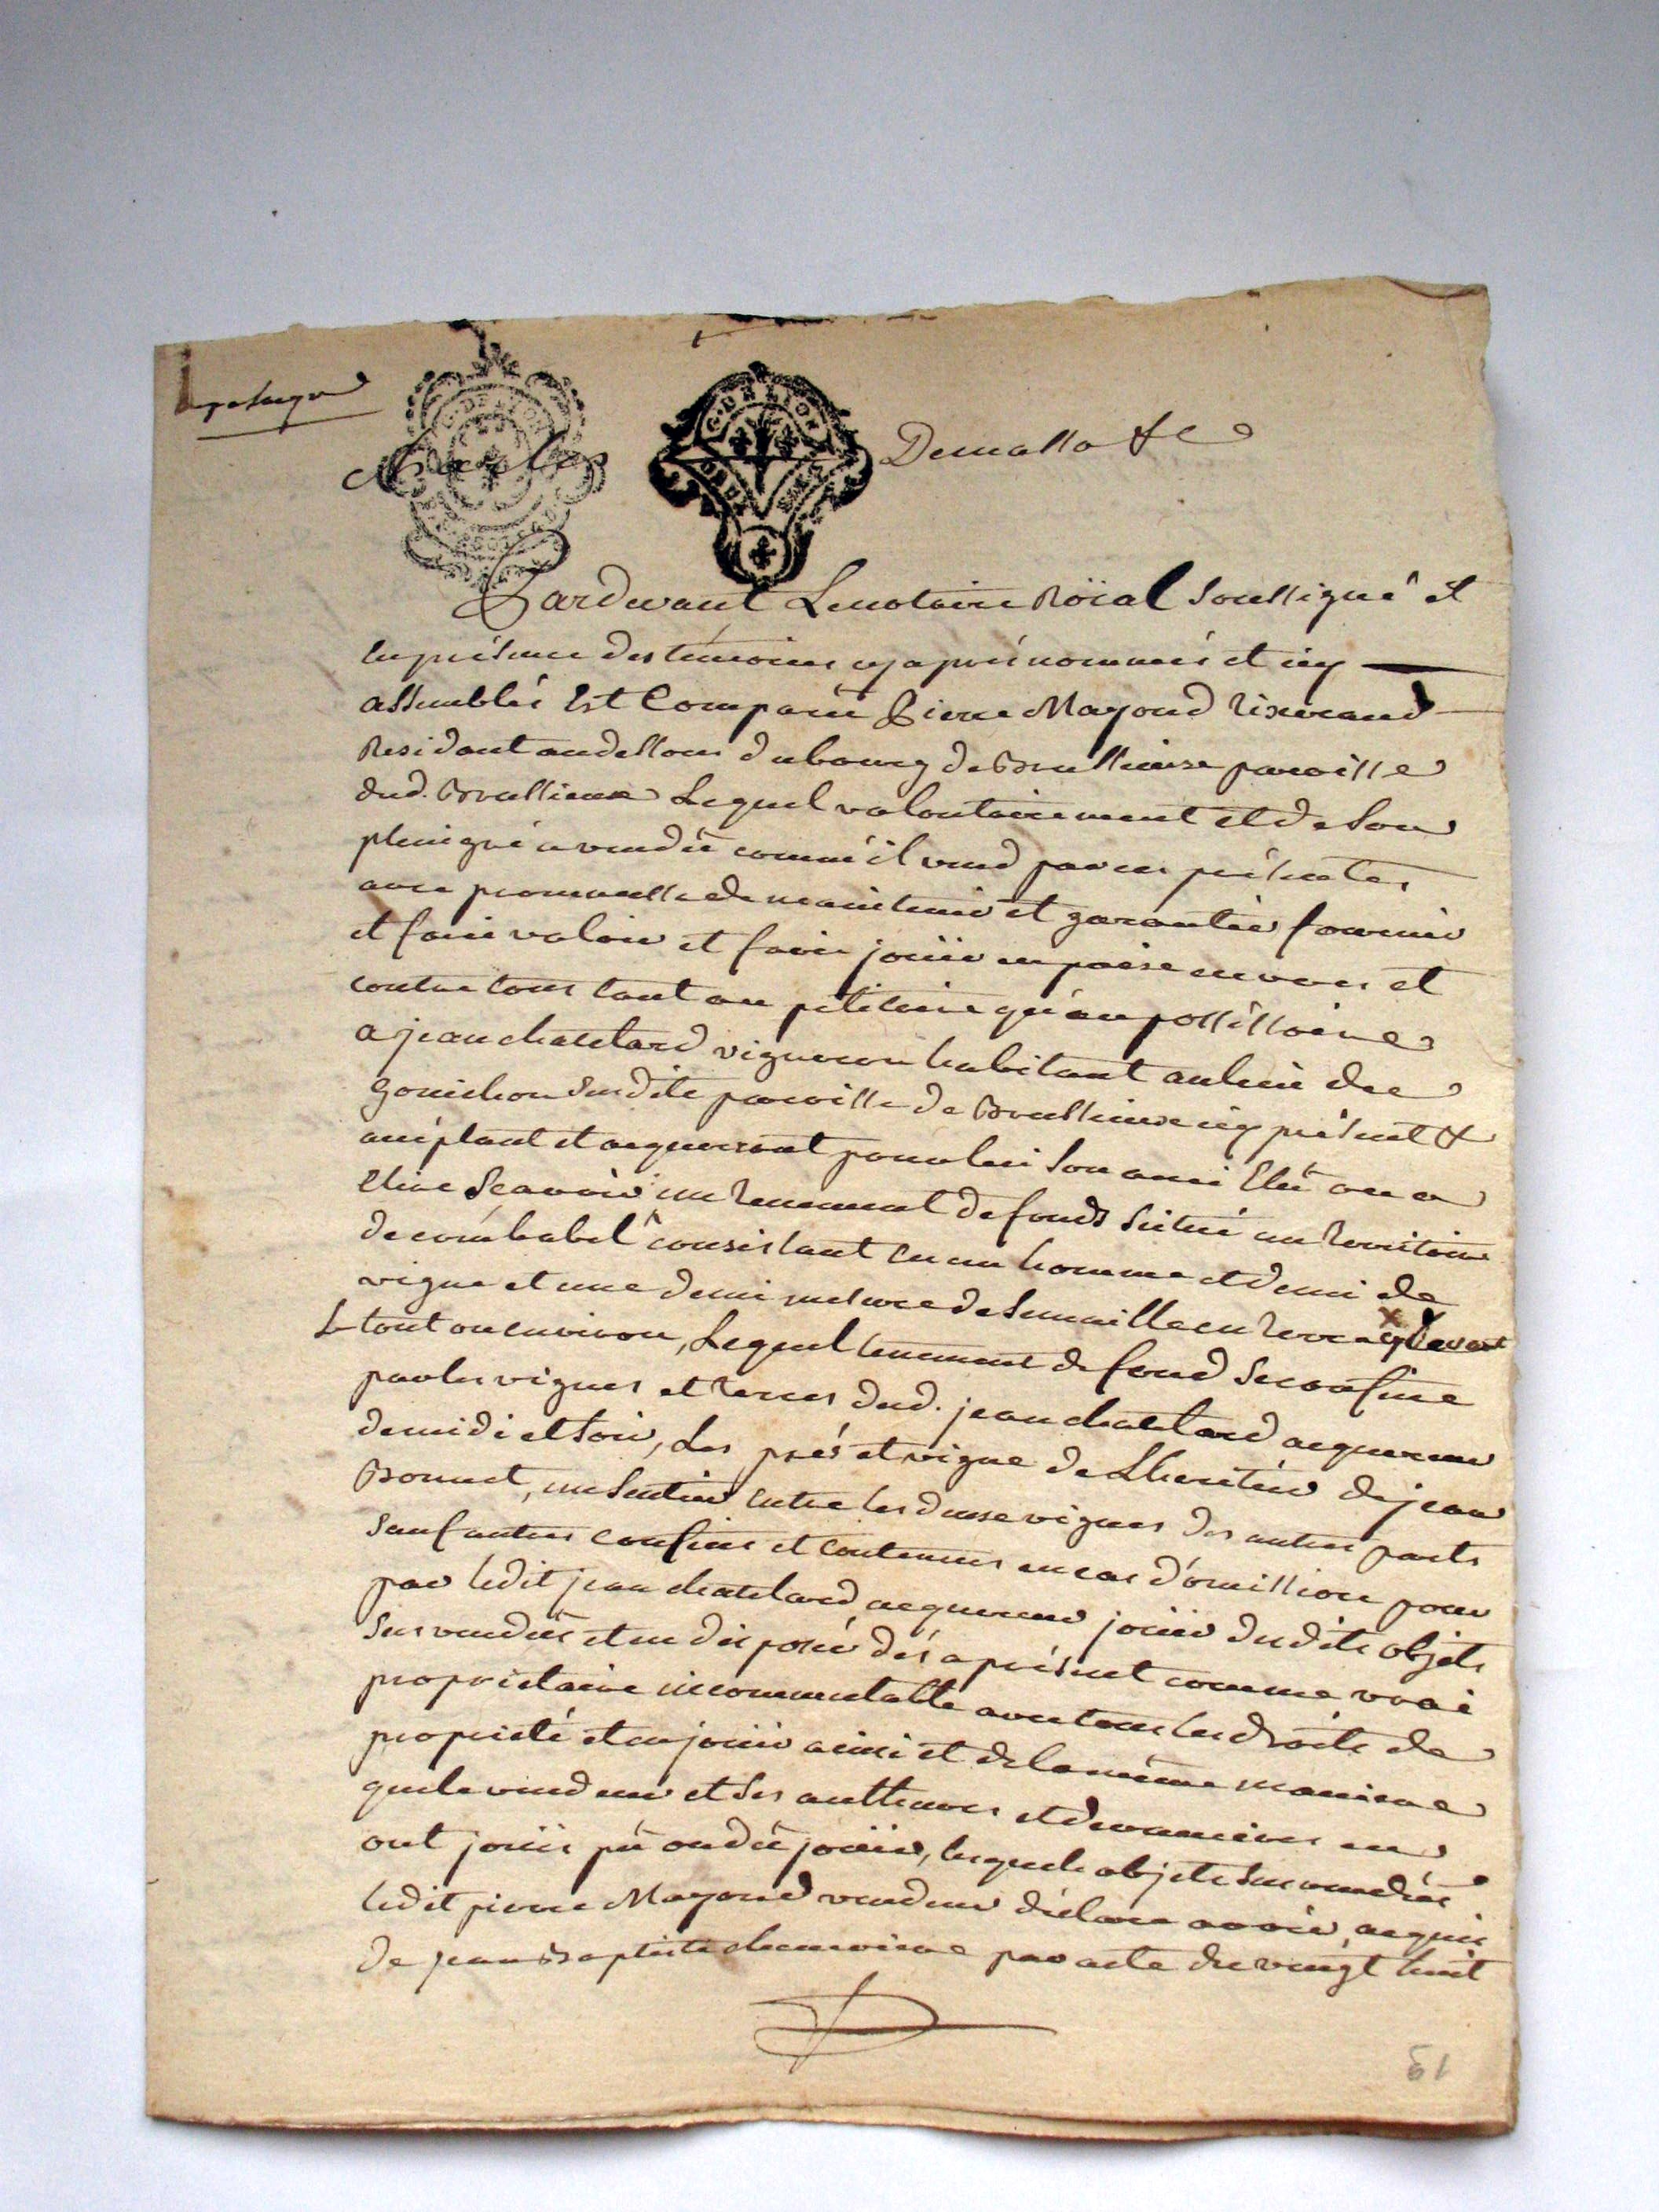 G. DE LION
G. DE LION
DEUX SOLS
Pardevant Lenotaire Roïal Soussigné et
En présence des témoins cy aprés nommés et icy
assemblés Est Comparû Pierre Mayoud tixerand
Residant audessous du bourg de Brussieux paroisse
dud. Brussieux Lequel volontairement et de Son
plein gré a vendû comm'il vend par ces présentes
avec promesse de maintenir et garantir fournir
et faire valoir et faire jouiir en paix envers et
contre tous tant au pétitoire qu'au possessoire
a jean chatelard vigneron habitant au lieu de
gouichon Susdite paroisse de Brussieux icy présent &
acéptant et acquerant pour lui Son ami Elû ou a
Elire Sçavoir un tenement de fonds Scitué au territoire
de consistant En un homme et demi de
vigne et une demi mesure de Semaille en terre
Le tout ou environ, Lequel tenement de fond Se confine
par les vignes et terres dud. jean chatelard acquereur
de midi et Soir, Les prés et vigne de Lheritier de jean
Bonnet, un Sentier Entre les deux vignes des autres parts
Sauf autres confins et contenues en cas d'omission pour
par ledit jean chatelard acquereur jouiir desdits objets
Sus vendûs et en disposér dés aprésent comme vrai
propriétaire incommutable avec tous les droits de
propriété et en jouiir ainsi et de la même maniere
que le vendeur et Ses autheurs et devanciers en
ont jouii pû ou dû jouiir, lesquels objets Sus vendûs
ledit pierre Mayoud vendeur déclare avoir acquis
de jean Baptiste par acte du vingt huit
51